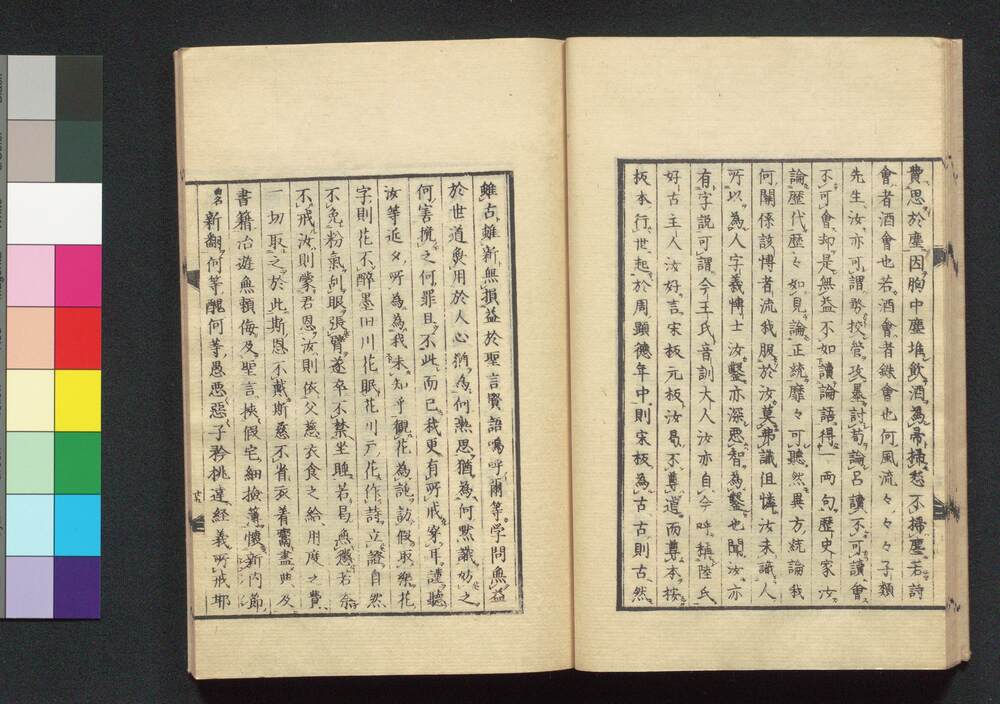 費思於塵因胸中塵堆飲酒為帚掃愁不掃塵若詩
會者酒會也若酒會者銖會也何風流々々々子類
先生汝亦可謂労挍管攻墨討荀論呂讀不可讀會
不可會却是無益不如讀論語得一両句歴史家汝
論歴代歴々如見論正統靡々可聽然異方統論我
何關係該愽者流我服於汝莫弟識但憐汝未識人
所以為人字義愽士汝鑿亦深悪智為鑿也聞汝亦
有字説可謂今王氏音訓大人汝亦自今呼稱陸氏
好古主人汝好言宋板元板汝曷不尊道而尊本按
板本行世起於周顕徳年中則宋板為古古則古然
雖古雖新無損益於聖言賢語嗚呼爾等学問無益
於世道無用於人心猶為何熟思猶為何黙識妨之
何害攙之何罪且不此而已我更有所戒寧耳謹聽
汝等近夕所為為我未知乎觀花為訛訪假取樂花
字則花不醉墨田川花眠花川戸花作詩立證自然
不免粉氣刮眼張臂遂卒不禁坐睡若曷無懲若奈
不戒汝則蒙君恩汝則依父慈衣食之給用度之費
一切取之於此斯恩不戴斯慈不省衣着鬻盡典及
書籍冶遊無頼侮及聖言挾假宅細撿薄懐新内節
曲名新翻何等醜何等愚悪惡子矜桃達経義所戒邶